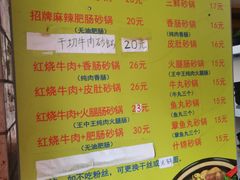 招牌麻辣肥肠砂锅 20元
(无油肥肠)
干切牛肉砂锅 20元
红烧牛肉+香肠砂锅 26元
(纯肉香肠)
红烧牛肉+皮肚砂锅 26元
红烧牛肉+火腿肠砂锅 23元
(王中王纯肉火腿肠)
红烧牛肉+肥肠砂锅 30元
(无油肥肠)
三鲜砂锅 16元
香肠砂锅
(纯肉香肠)
皮肚砂锅 16元
火腿肠砂锅
(王中王纯肉火腿肠)
牛丸砂锅 15元
鱼丸砂锅 15元
章鱼丸砂锅 15元
什锦砂锅 26元
如不吃粉丝，可更换干丝或